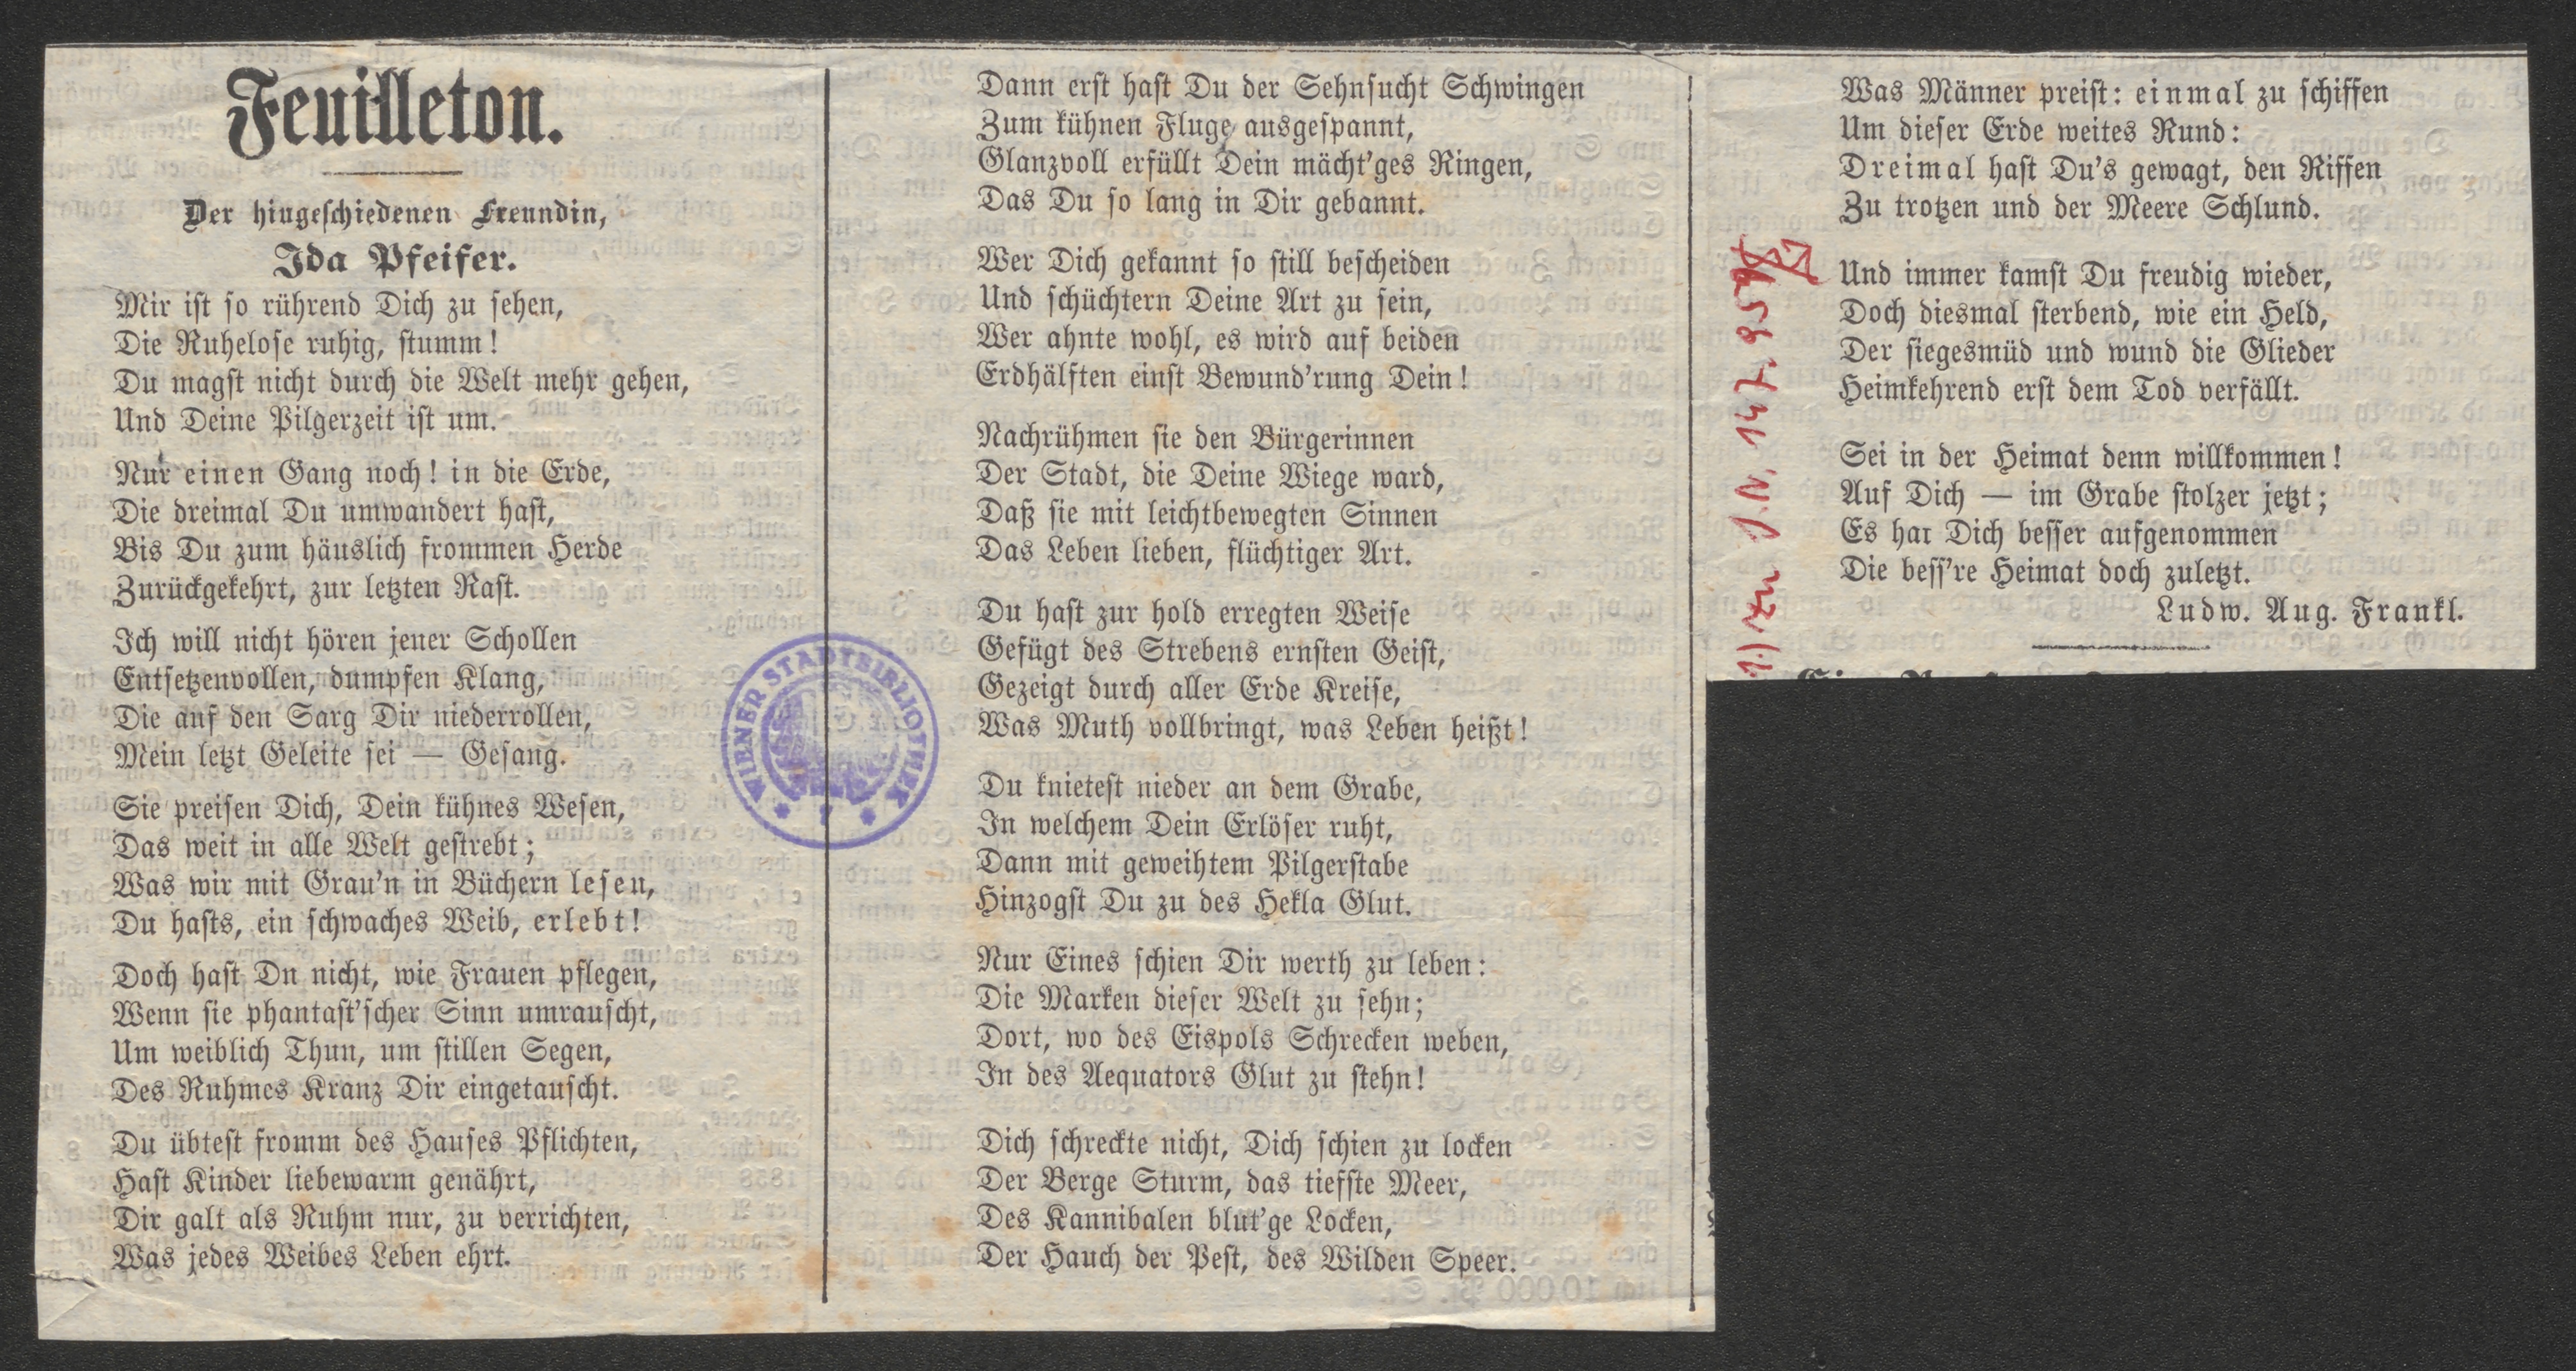 Feuilleton.
Der hingeschiedenen Freundin,
Ida Pfeifer.
Mir ist so rührend Dich zu sehen,
Die Ruhelose ruhig, stumm!
Du magst nicht durch die Welt mehr gehen,
Und Deine Pilgerzeit ist um.
Nur einen Gang noch! in die Erde,
Die dreimal Du umwandert hast,
Bis Du zum häuslich frommen Herde
Zurückgekehrt, zur letzten Rast.
Ich will nicht hören jener Schollen
Entsetzenvollen, dumpfen Klang,
Die auf den Sarg Dir niederrollen,
Mein letzt Geleite sei — Gesang.
Sie preisen Dich, Dein kühnes Wesen,
Das weit in alle Welt gestrebt;
Was wir mit Grau'n in Büchern lesen,
Du hasts, ein schwaches Weib, erlebt!
Doch hast Dn nicht, wie Frauen pflegen,
Wenn sie phantast'scher Sinn umrauscht,
Um weiblich Thun, um stillen Segen,
Des Ruhmes Kranz Dir eingetauscht.
Du übtest fromm des Hauses Pflichten,
Hast Kinder liebewarm genährt,
Dir galt als Ruhm nur, zu verrichten,
Was jedes Weibes Leben ehrt.
WIENER STADTBIBLIOTHEK
Dann erst hast Du der Sehnsucht Schwingen
Zum kühnen Fluge ausgespannt,
Glanzvoll erfüllt Dein mächt'ges Ringen,
Das Du so lang in Dir gebannt.
Wer Dich gekannt so still bescheiden
Und schüchtern Deine Art zu sein,
Wer ahnte wohl, es wird auf beiden
Erdhälften einst Bewund'rung Dein!
Nachrühmen sie den Bürgerinnen
Der Stadt, die Deine Wiege ward,
Daß sie mit leichtbewegten Sinnen
Das Leben lieben, flüchtiger Art.
Du hast zur hold erregten Weise
Gefügt des Strebens ernsten Geist,
Gezeigt durch aller Erde Kreise,
Was Muth vollbringt, was Leben heißt!
Du knietest nieder an dem Grabe,
In welchem Dein Erlöser ruht,
Dann mit geweihtem Pilgerstabe
Hinzogst Du zu des Hekla Glut.
Nur Eines schien Dir werth zu leben:
Die Marken dieser Welt zu sehn;
Dort, wo des Eispols Schrecken weben,
In des Aequators Glut zu stehn!
Dich schreckte nicht, Dich schien zu locken
Der Berge Sturm, das tiefste Meer,
Des Kannibalen blut'ge Locken,
Der Hauch der Pest, des Wilden Speer.
Was Männer preist: einmal zu schiffen
Um dieser Erde weites Rund:
Dreimal hast Du's gewagt, den Riffen
Zu trotzen und der Meere Schlund.
Und immer kamst Du freudig wieder,
Doch diesmal sterbend, wie ein Held,
Der siegesmüd und wund die Glieder
Heimkehrend erst dem Tod verfällt.
Sei in der Heimat denn willkommen!
Auf Dich — im Grabe stolzer jetzt;
Es hat Dich besser aufgenommen
Die bess're Heimat doch zuletzt.
Ludw. Aug. Frankl.
1.) zu J.N. 147.